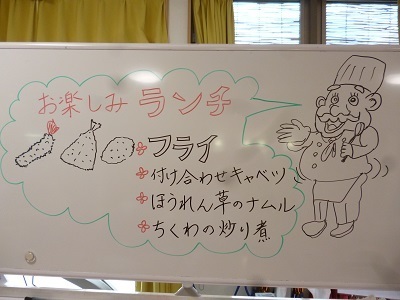 お楽しみ ランチ
フライ
付け合わせキャベツ
ほうれん草のナムル
ちくわの炒り煮